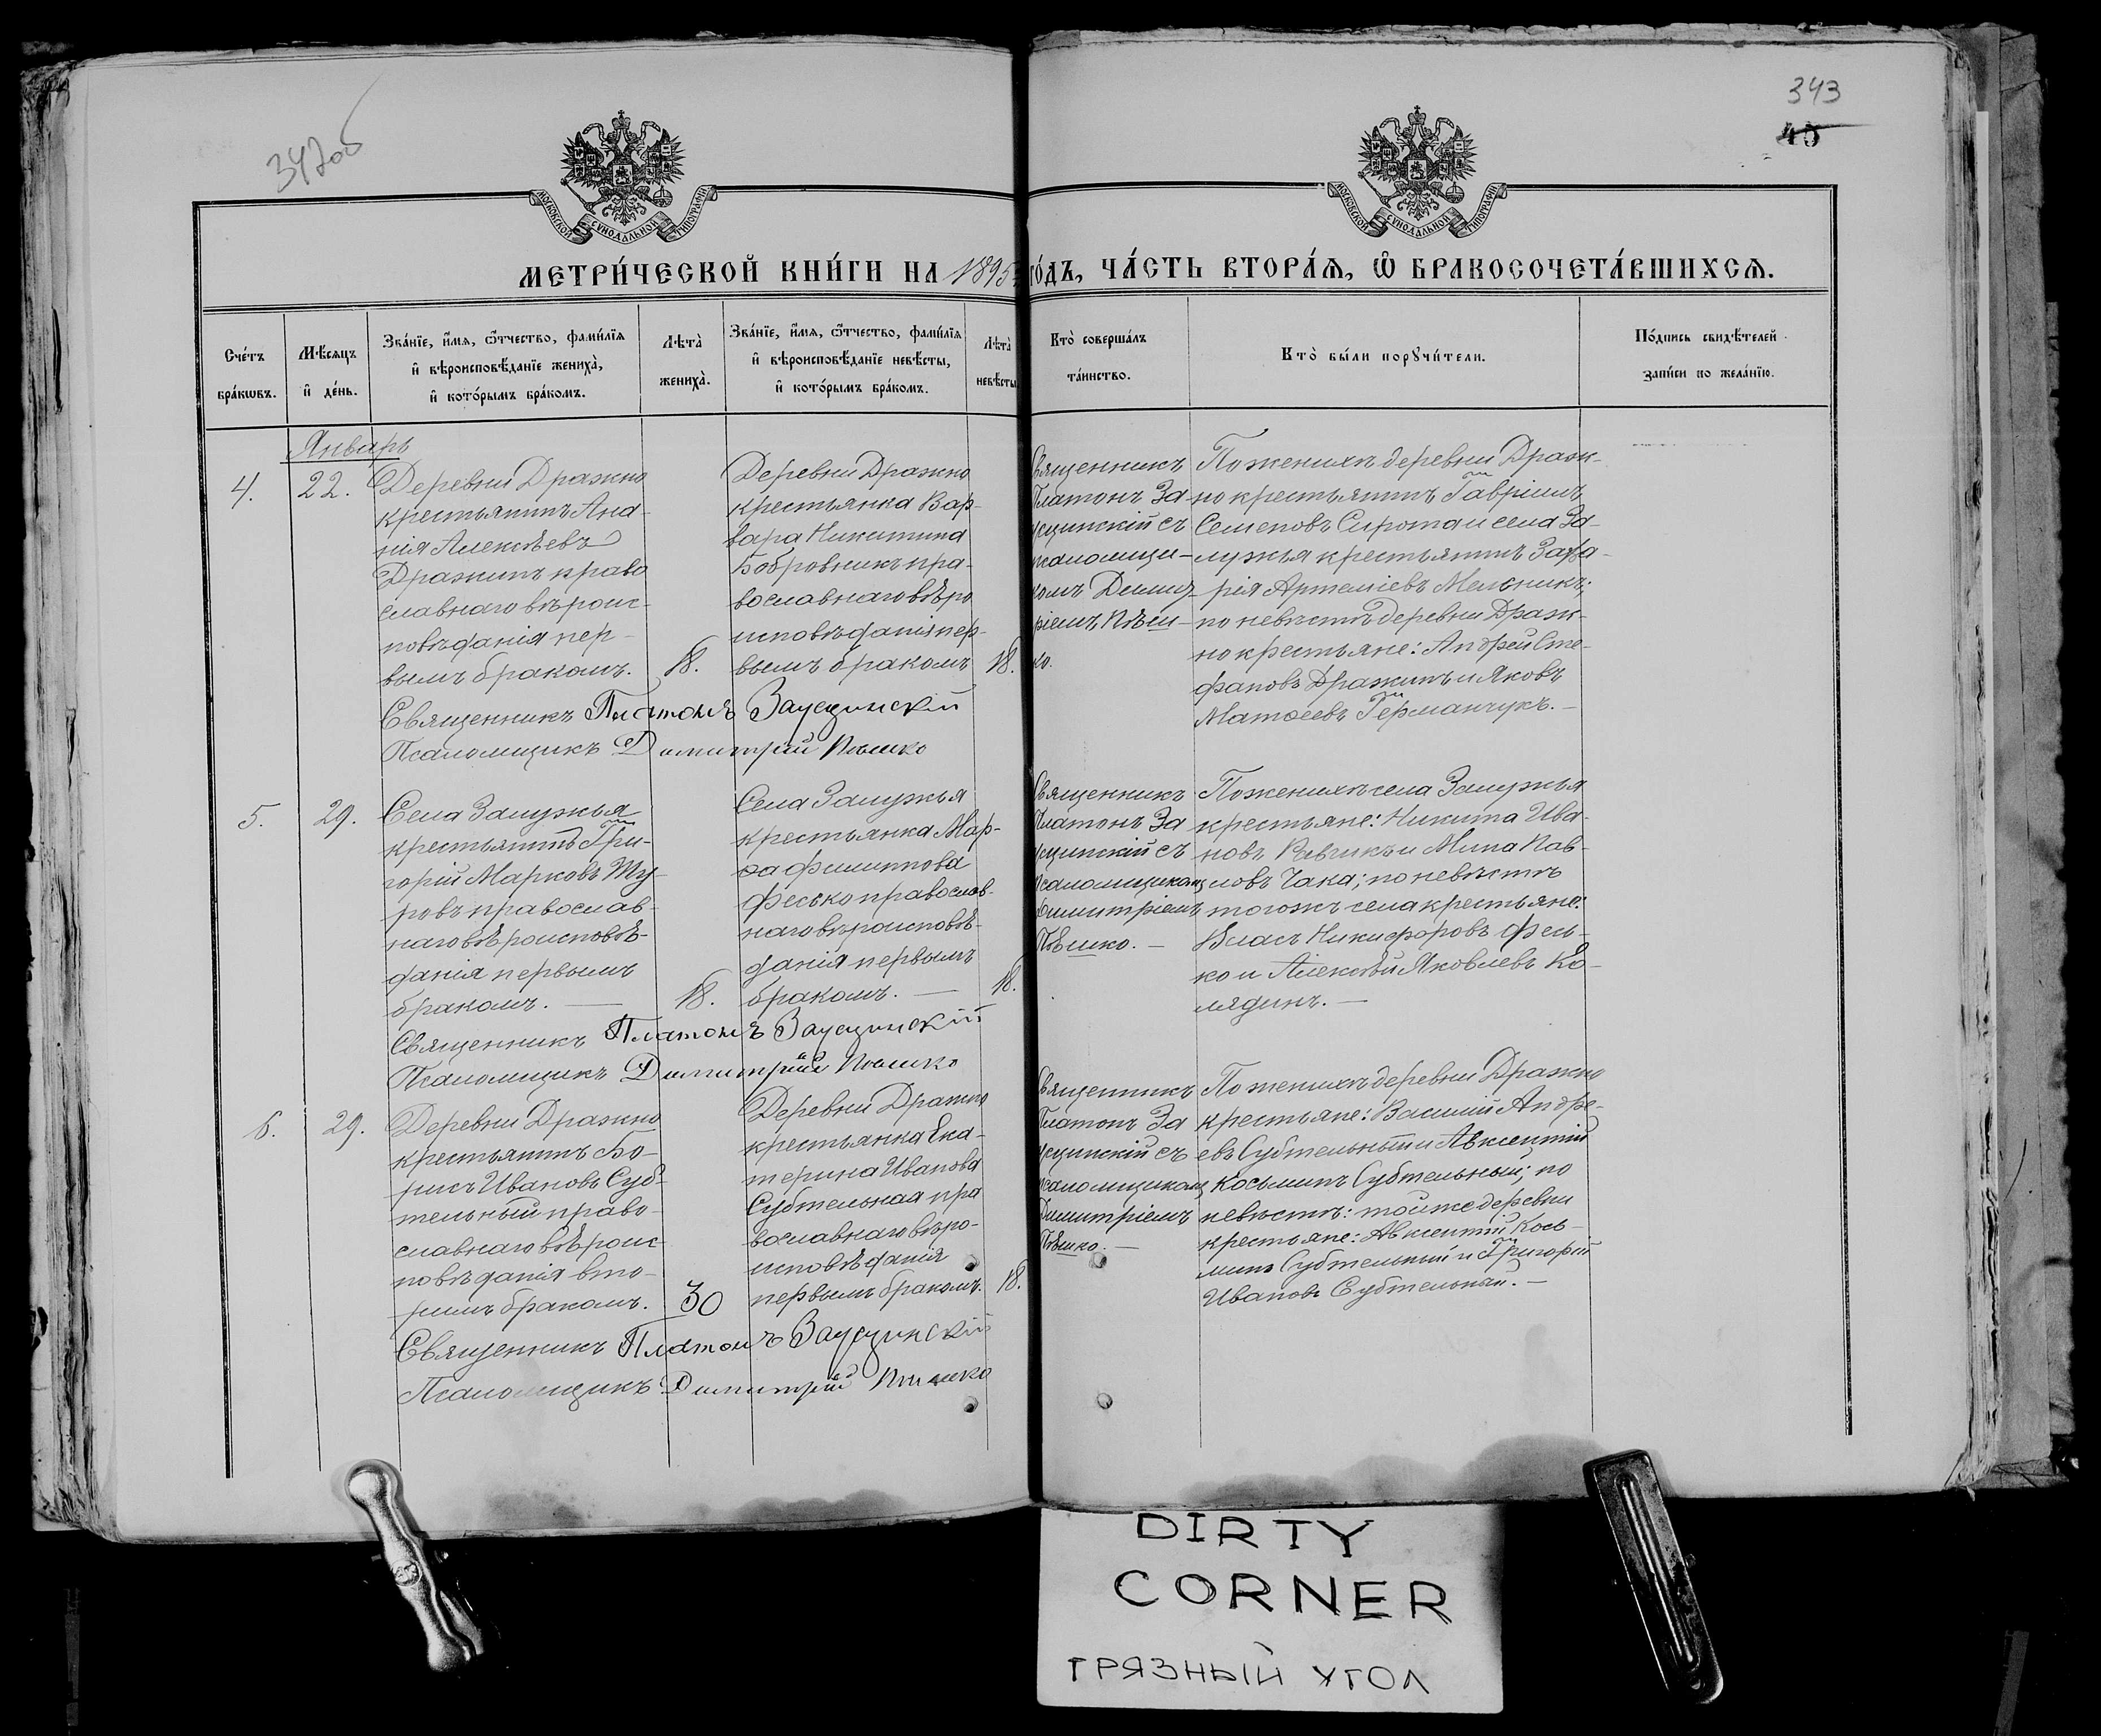 342об
343
45
МОСКОВСКОЙ СѴНОДАЛЬНОЙ ТИПОГРАФІИ
МОСКОВСКОЙ СѴНОДАЛЬНОЙ ТИПОГРАФІИ
МЕТРИ́ЧЕСКОЙ КНИ́ГИ НА 1895
ГО́ДЪ, ЧА́СТЬ ВТОРА́Ѧ, Ѽ БРАКОСОЧЕТА́ВШИХСѦ.
Сче́тъ
бра́кѡвъ.
Мѣ́сѧцъ
и҆ де́нь.
Зва́нїе, и҆́мѧ, ѻ҆́тчество, фами́лїѧ
и҆ вѣроисповѣ́данїе жениха̀,
и҆ кото́рымъ бра́комъ.
Лѣта̀
жениха̀.
Зва́нїе, и҆́мѧ, ѻ҆́тчество, фами́лїѧ
и҆ вѣроисповѣ́данїе невѣ́сты,
и҆ кото́рымъ бра́комъ.
Лѣта̀
невѣ́сты
Кто̀ соверша́лъ
та́инство.
Кто̀ бы́ли порꙋчи́тели.
По́дпись свидѣ́телей
за́писи по жела́нїю.
Январь
4.
22.
Деревни Дражно
крестьянинъ Ана-
нія Алексѣевъ
Дражинъ право
славнаго вѣроис-
повѣданія пер-
вымъ бракомъ.
18.
Деревни Дражно
крестьянка Вар-
вара Никитина
Бобровникъ пра-
вославнаго вѣро
исповѣданія пер-
вымъ бракомъ
18.
Священникъ
Платонъ За
усцинскій съ
псаломщи-
комъ Димит
ріемъ Пѣш-
ко.
По женихѣ деревни Драж-
но крестьянинъ Гавріилъ
Семеновъ Сирота и села За-
лужья крестьянинъ Заха-
рія Артеміевъ Мельникъ;
по невѣстѣ деревни Драж-
но крестьяне: Андрей Сте-
фановъ Дражинъ и Яковъ
Матѳеевъ Германчукъ. —
Священникъ Платонъ Заусцинскій
Псаломщикъ Димитрій Пѣшко
5.
29.
Села Залужья
крестьянинъ Гри-
горій Марковъ Ту-
ровъ православ-
наго вѣроисповѣ-
данія первымъ
бракомъ. —
18.
Села Залужья
крестьянка Мар-
ѳа Филиппова
Фесько православ-
наго вѣроисповѣ-
данія первымъ
бракомъ. —
18.
Священникъ
Платонъ За
усцинскій съ
псаломщикомъ
Димитріемъ
Пѣшко. —
По женихѣ села Залужья
крестьяне: Никита Ива-
новъ Ревчикъ и Мина Пав-
ловъ Чака; по невѣстѣ
тогожъ села крестьяне:
Власъ Никифоровъ Фесь-
ко и Алексѣй Яковлевъ Ко-
лядичъ. —
Священникъ Платонъ Заусцинскій
Псаломщикъ Димитрій Пѣшко
6.
29.
Деревни Дражно
крестьянинъ Бо-
рисъ Ивановъ Суб-
тельный право-
славнаго вѣроис-
повѣданія вто-
рымъ бракомъ.
30
Деревни Дражно
крестьянка Ека-
терина Иванова
Субтельная пра
вославнаго вѣро-
исповѣданія
первымъ бракомъ.
18.
Священникъ
Платонъ За
усцинскій съ
псаломщикомъ
Димитріемъ
Пѣшко. —
По женихѣ деревни Дражно
крестьяне: Василій Андре-
евъ Субтельный и Авксентій
Косьминъ Субтельный; по
невѣстѣ: тойже деревни
крестьяне: Авксентій Кось-
минъ Субтельный и Григорій
Ивановъ Субтельный. —
Священникъ Платонъ Заусцинскій
Псаломщикъ Димитрій Пѣшко
DIRTY
CORNER
ГРЯЗНЫЙ УГОЛ